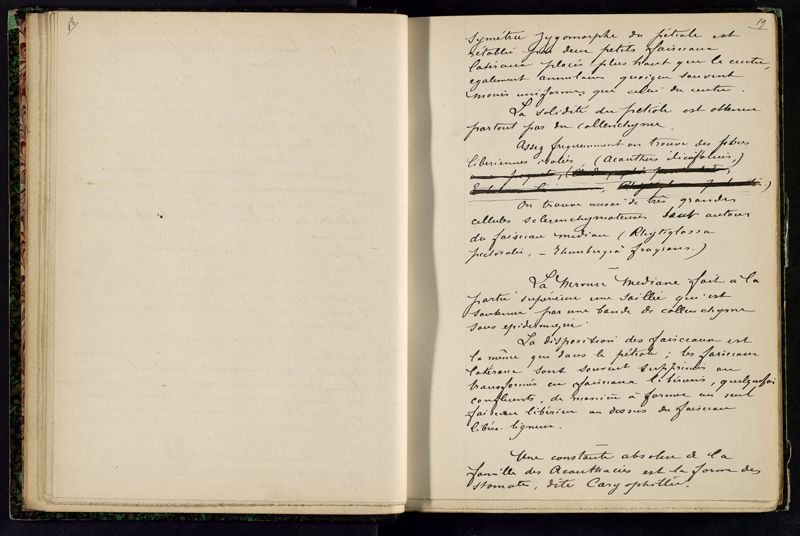 13
19
symétrie zygomorphe du pétiole est
rétablie par deux petits faisceaux
latéraux placés plus haut que le centre,
également annulaires quoique souvent
moins uniformes que celui du centre.
La solidité du pétiole est obtenue
partout par du collenchyme.
Assez fréquemment on trouve des fibres
libériennes isolées (Acanthus ilicifolius,)
On trouve aussi de très grandes
cellules sclerenchymateuses tout autour
du faisceau médian (Rhytiglossa
pectoralis, – Thunbergia fragrans.)
La Nervure Médiane fait à la
partie supérieure une saillie qui est
soutenue par une bande de collenchyme
sous epidermique.
La disposition des faisceaux est
la même que dans le pétiole; les faisceaux
latéraux sont souvent supprimés ou
transformés en faisceaux libériens, quelquefois
confluents, de manière à former un seul
faisceau libérien au dessus du faisceau
libéro-ligneux.
Une constante absolue de la
famille des Acanthacées est la forme des
stomates, dite Caryophillée.